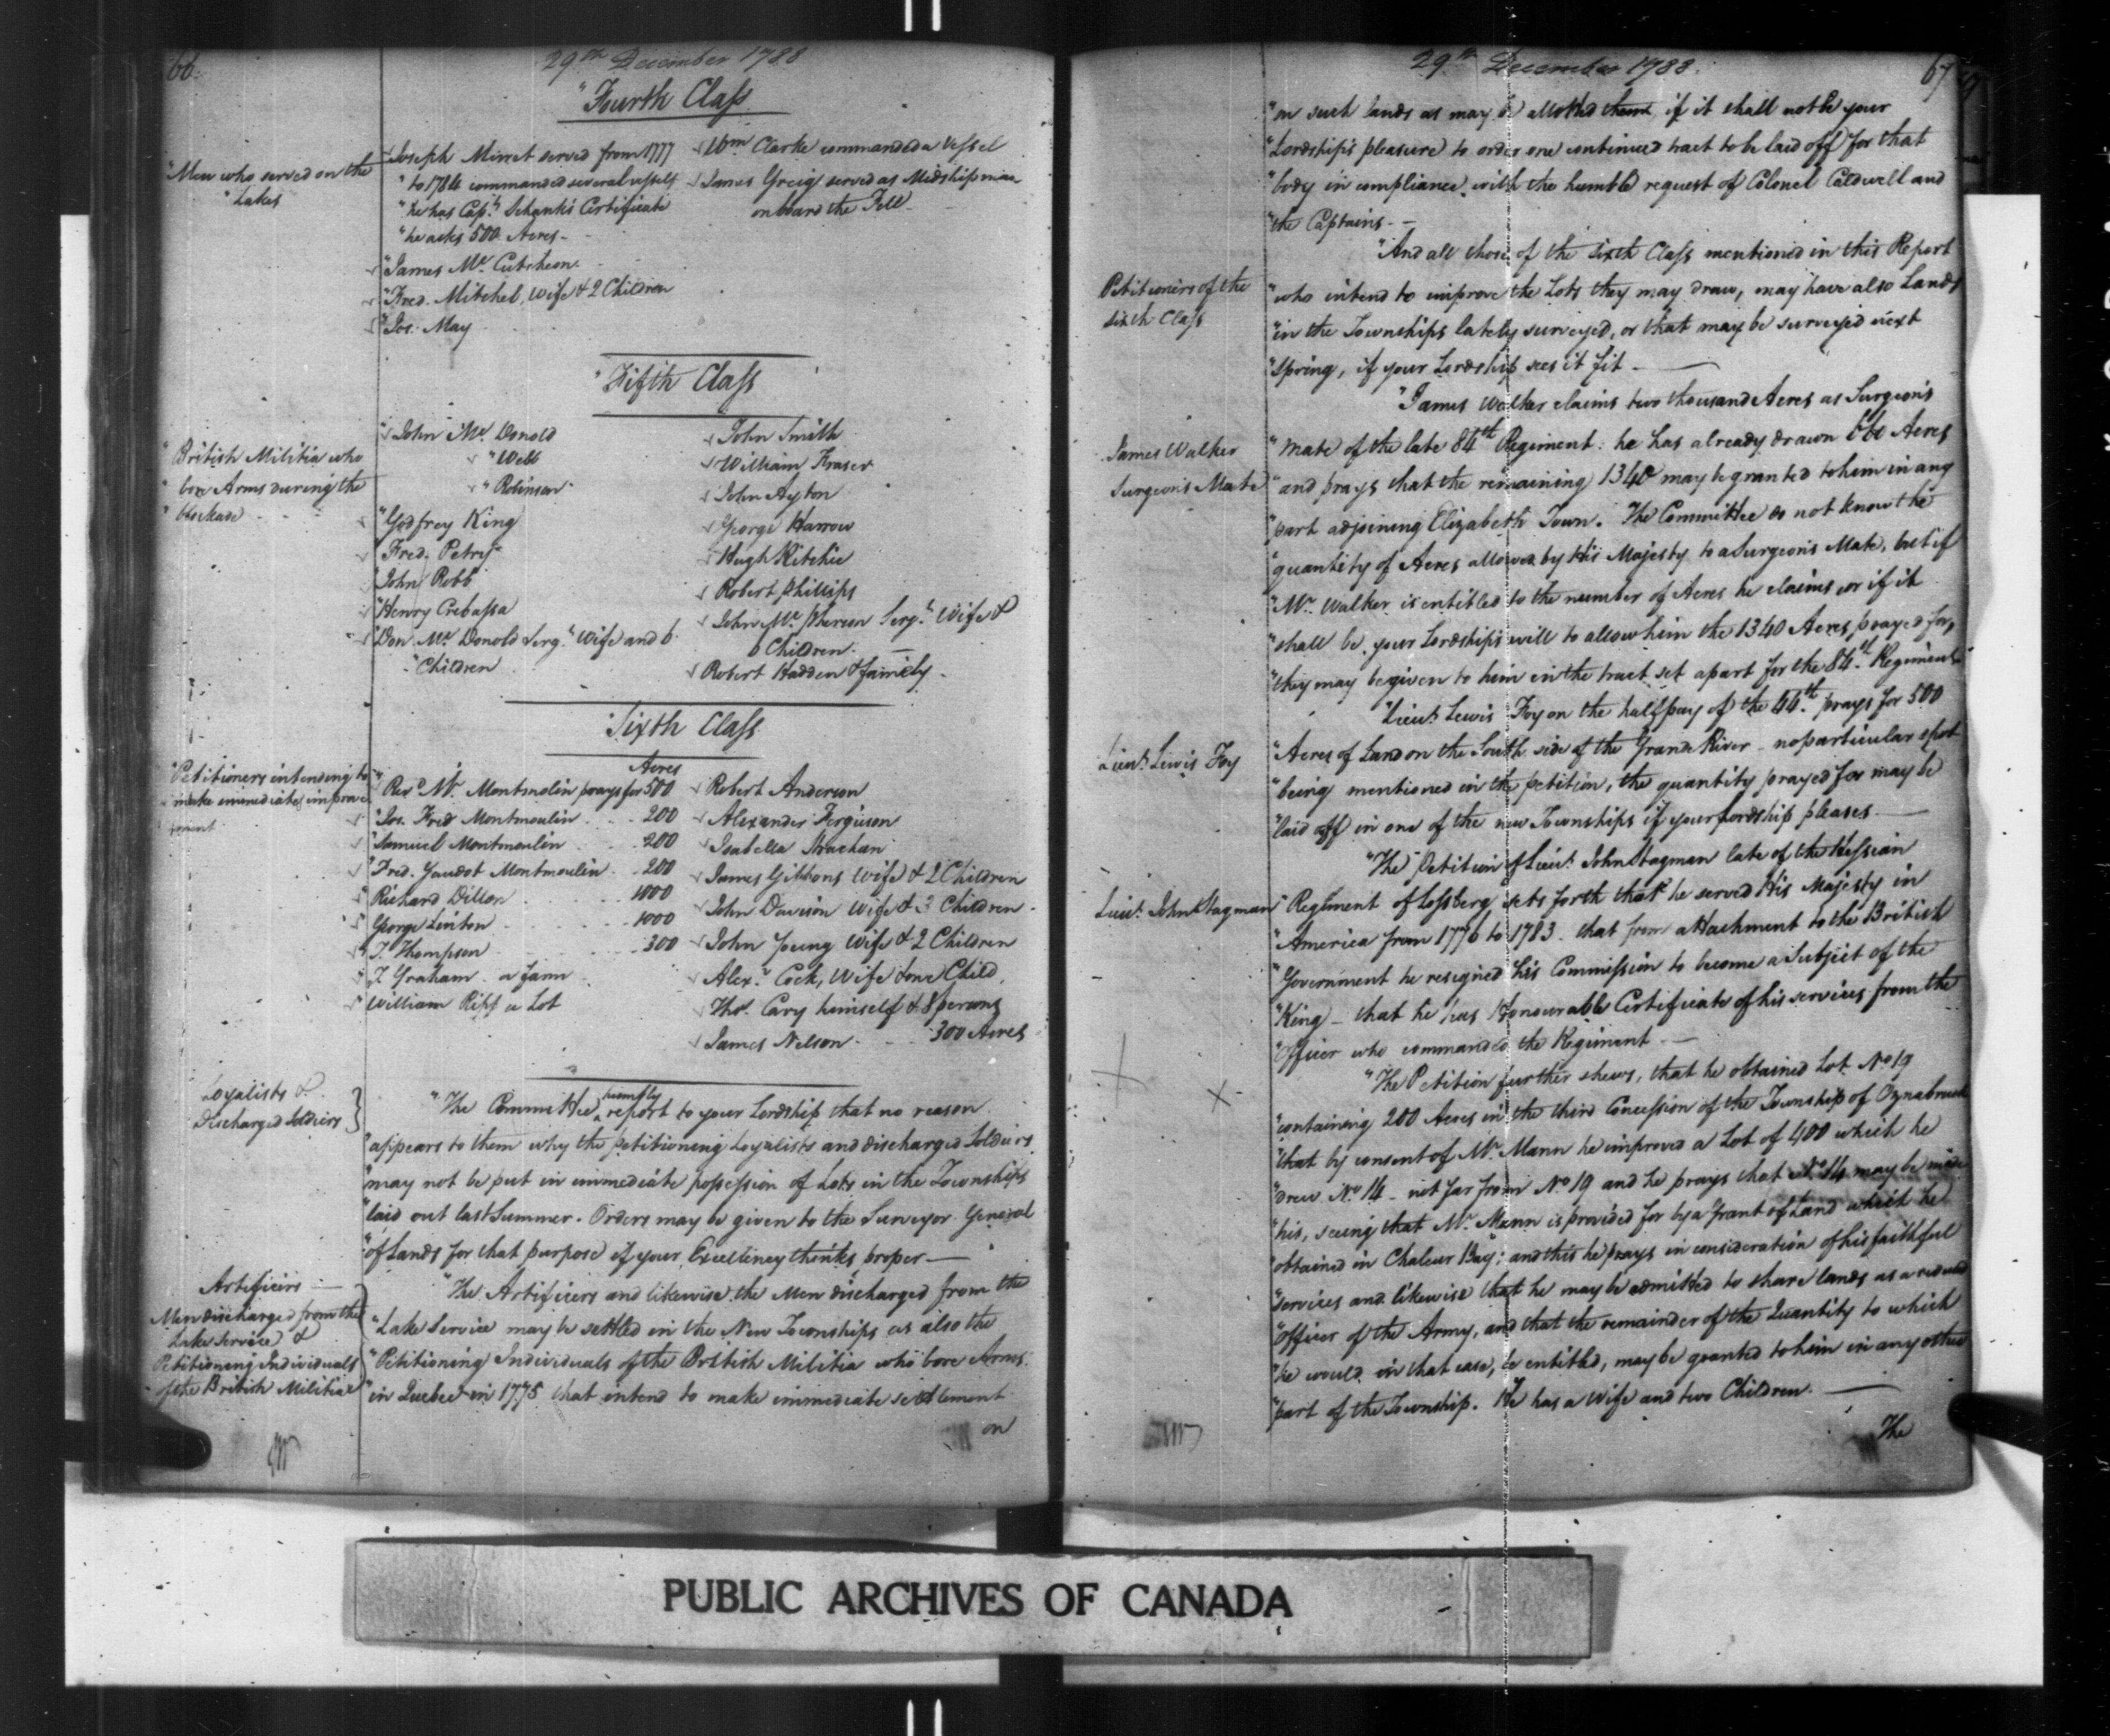 66.
29th December 1788
"Fourth Class
"Men who served on the
"Lakes
"Joseph Minet served from 1777
"to 1784 commanded several vessels
"he has Capt. Schank's Certificate
"he asks 500 Acres -
"James Mc. Cutcheon.
"Fred. Mitchel, Wife & 2 Children
"Jos. May
Wm. Clarke commanded a Vessel
James Greig served as Midshipman
on board the Tell
"Fifth Class
"British Militia who
"bore Arms during the
"blockade
"John Mc. Donold
" "Webb
" "Robinson
"Godfrey King
"Fred. Petry
"John Robb
"Henry Crebassa
"Don. Mc. Donold Serg.t Wife and 6
"Children
John Smith
William Fraser
John Ayton
George Harrow
Hugh Ritchie
Robert Phillips
John Mc. Pherson Serg.t Wife &
6 Children.
Robert Hadden & family.
"Sixth Class
"Petitioners intending to
make immediate improve
ment
Acres
"Revd. Mr. Montmolin prays for 500
"Jos. Fred Montmoulin 200
"Samuel Montmoulin 200
"Fred. Gaudot Montmoulin 200
"Richard Dillon 1000
"George Linton 1000
"J. Thompson 300
"J. Graham. a farm
"William Ripp a Lot
Robert Anderson
Alexander Ferguson
Isabella Strachan
James Gibbons Wife & 2 Children
John Davison Wife & 3 Children.
John Young Wife & 2 Children
Alexr. Cock, Wife & one Child,
Thos. Cary himself & 8 persons
James Nelson 300 Acres
Loyalists &
Discharged Soldiers
"The Committee humbly report to your Lordship that no reason
"appears to them why the petitioning Loyalists and discharged Soldiers
"may not be put in immediate possession of Lots in the Townships
"laid out last Summer. Orders may be given to the Surveyor General
"of Lands for that purpose if your Excellency thinks proper —
Artificers —
Men discharged from the
Lake Service &
Petitioning Individuals
of the British Militia
"The Artificers and likewise the Men discharged from the
"Lake Service may be settled in the New Townships as also the
"Petitioning Individuals of the British Militia who bore Arms
"in Quebec in 1775 that intend to make immediate settlement
on
29th December 1788.
67
"on such lands as may be allotted them if it shall not be your
"Lordship's pleasure to order one continued tract to be laid off for that
"body in compliance with the humble request of Colonel Caldwell and
"the Captains. —
Petitioners of the
sixth Class
"And all those of the sixth Class mentioned in this Report
"who intend to improve the Lots they may draw, may have also Lands
"in the Townships lately surveyed, or that may be surveyed next
"spring, if your Lordship sees it fit —
James Walker
Surgeon's Mate
"James Walker claims two thousand Acres as Surgeon's
"mate of the late 84th Regiment: he has already drawn 660 Acres
"and prays that the remaining 1340 may be granted to him in any
"part adjoining Elizabeth Town. The Committee do not know the
"quantity of Acres allowed by His Majesty to a Surgeon's Mate, but if
"Mr. Walker is entitled to the number of Acres he claims or if it
"shall be your Lordship's will to allow him the 1340 Acres prayed for,
"they may be given to him in the tract set apart for the 84th Regiment
Lieut. Lewis Foy
"Lieut. Lewis Foy on the half pay of the 44th. prays for 500
"Acres of Land on the South side of the Grande River - no particular spot
"being mentioned in the petition, the quantity prayed for may be
"laid off in one of the new Townships if your Lordship pleases. —
Lieut. John Stagman
"The Petition of Lieut. John Stagman late of the Hessian
"Regiment of Lossberg sets forth that he served His Majesty in
"America from 1776 to 1783. that from attachment to the British
"Government he resigned his Commission to become a Subject of the
"King - that he has Honourable Certificate of his services from the
"Officer who commanded the Regiment —
"The Petition further shews, that he obtained Lot No. 19
"containing 200 Acres in the third Concession of the Township of Oznabruck
"that by consent of Mr. Mann he improved a Lot of 400 which he
"drew No. 14 - not far from No. 19 and he prays that No. 14 may be made
"his, seeing that Mr. Mann is provided for by a Grant of Land which he
"obtained in Chaleur Bay; and this he prays in consideration of his faithful
"services and likewise that he may be admitted to share lands as a reduced
"officer of the Army, and that the remainder of the Quantity to which
"he would in that case, be entitled, may be granted to him in any other
"part of the Township. He has a Wife and two Children. —
The
PUBLIC ARCHIVES OF CANADA